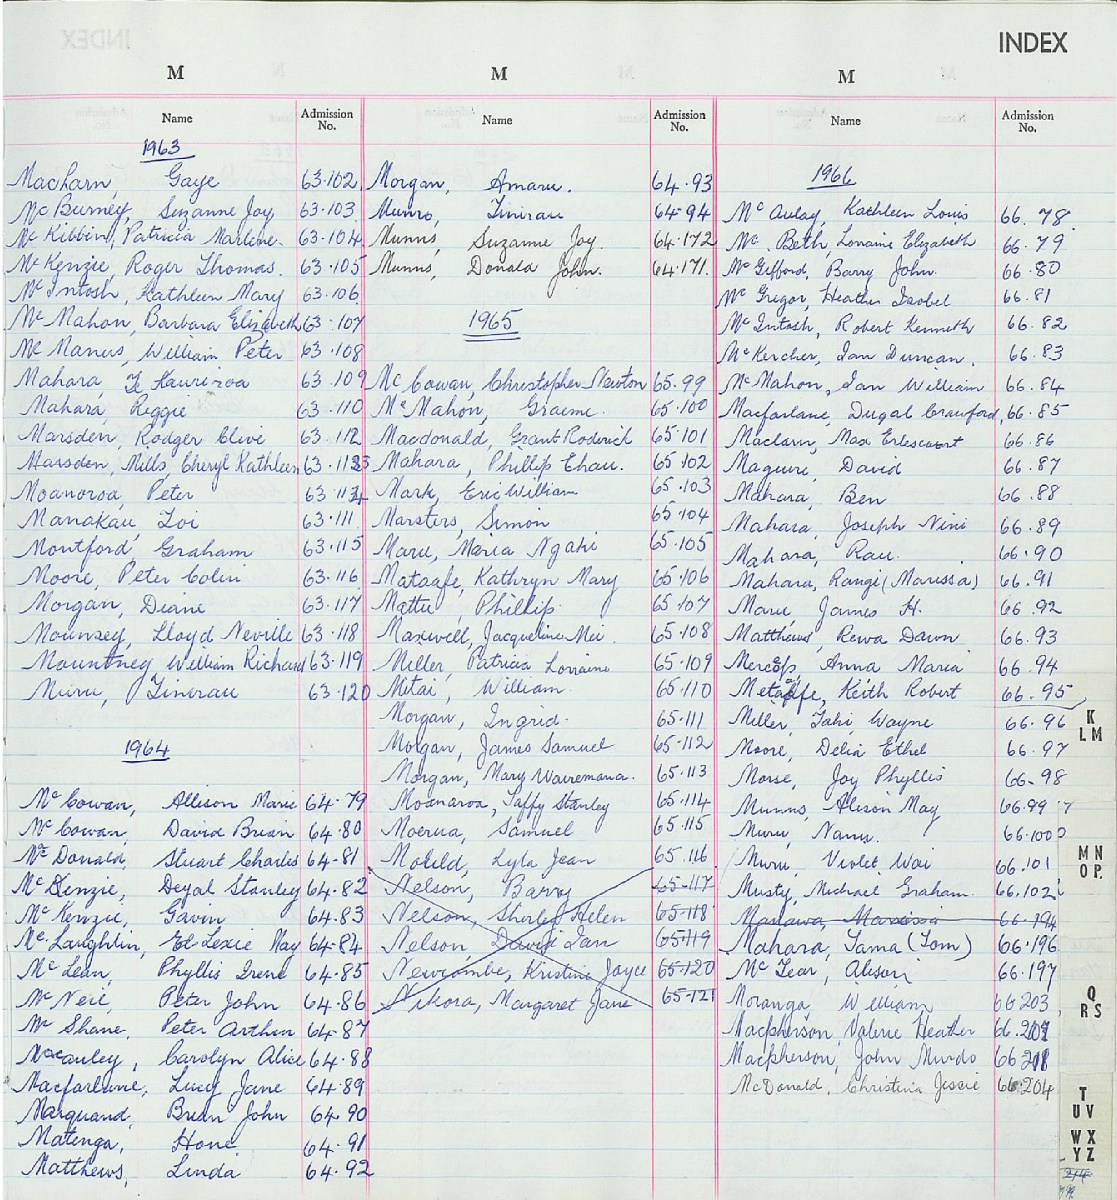 INDEX
M
Name Admission No.
1963
MacLarn, Gaye 63.102
McBurney, Suzanne Joy 63.103
McKibbin, Patricia Marlene. 63.104
McKenzie, Roger Thomas. 63.105
McIntosh, Kathleen Mary 63.106
McMahon, Barbara Elizabeth 63.107
McManus, William Peter 63.108
Mahara, Te Hauriroa 63.109
Mahara, Reggie 63.110
Marsden, Rodger Clive 63.112
Marsden, Mills, Cheryl Kathleen 63.113
Moanoroa, Peter 63.114
Manakau Zoi 63.111
Montford, Graham 63.115
Moore, Peter Colin 63.116
Morgan, Diane 63.117
Mounsey, Lloyd Neville 63.118
Mountney, William Richard 63.119
Muru, Tinirau 63.120
1964
McCowan, Allison Marie 64.79
McCowan, David Brian 64.80
McDonald, Stuart Charles 64.81
McKenzie, Doyal Stanley 64.82
McKenzie, Gavin 64.83
McLaughlin, Lexie May 64.84
McLean, Phyllis Irene 64.85
McNeil, Peter John 64.86
McShane, Peter Arthur 64.87
Macauley, Carolyn Alice 64.88
Macfarlane, Lucy Jane 64.89
Marquand, Brian John 64.90
Matenga, Hone 64.91
Matthews, Linda 64.92
M
Name Admission No.
Morgan, Amaru. 64.93
Munro, Tinirau 64.94
Munns, Suzanne Joy. 64.172
Munns, Donald John. 64.171.
1965
McCowan, Christopher Newton 65.99
McMahon, Graeme. 65.100
Macdonald, Grant Roderick 65.101
Mahara, Phillip Ehau. 65.102
Mark, Eric William 65.103
Marsters, Simon 65.104
Maru, Maria Ngahi 65.105
Mataafe, Kathryn Mary 65.106
Mattu, Phillip. 65.107
Maxwell, Jacqueline Mei. 65.108
Miller, Patricia Lorraine 65.109
Mitai, William. 65.110
Morgan, Ingrid. 65.111
Morgan, James Samuel 65.112
Morgan, Mary Wairemana. 65.113
Moanaroa, Taffy Stanley 65.114
Moerua, Samuel 65.115
Mouild, Lyla Jean 65.116
Nelson, Barry 65.117
Nelson, Shirley Helen 65.118
Nelson, David Ian 65.119
Newcombe, Kristine Joyce 65.120
Nikora, Margaret Jane 65.121
M
Name Admission No.
1966
McAulay, Kathleen Louis 66.78
Mc.Beth, Lorraine Elizabeth 66.79
McGifford, Barry John. 66.80
McGregor, Heather Isobel 66.81
McIntosh, Robert Kenneth 66.82
McKercher, Ian Duncan. 66.83
McMahon, Ian William 66.84
Macfarlane, Dugal Crawford, 66.85
Maclarn, Max 66.86
Maguire, David 66.87
Mahara, Ben 66.88
Mahara, Joseph Nini 66.89
Mahara, Rau. 66.90
Mahara, Rangi (Marissa) 66.91
Maru James H. 66.92
Matthews, Rewa Dawn 66.93
Mercep, Anna Maria 66.94
Metcalfe, Keith Robert 66.95
Miller, Tahi Wayne 66.96
Moore, Delia Ethel 66.97
Morse, Joy Phyllis 66.98
Munns, Alison May 66.99
Muru, Nanu. 66.100
Muru, Violet Wai 66.101
Musty, Michael Graham. 66.102
Manawa, 66.194
Mahara, Tama (Tom) 66.196
McLear, Alison 66.197
Moranga, William 66 203
Macpherson, Valerie Heather 66.207
Macpherson, John Murdo 66 208
McDonald, Christina Jessie 66.204
K
LM
MN
OP.
Q
RS
T
UV
WX
YZ